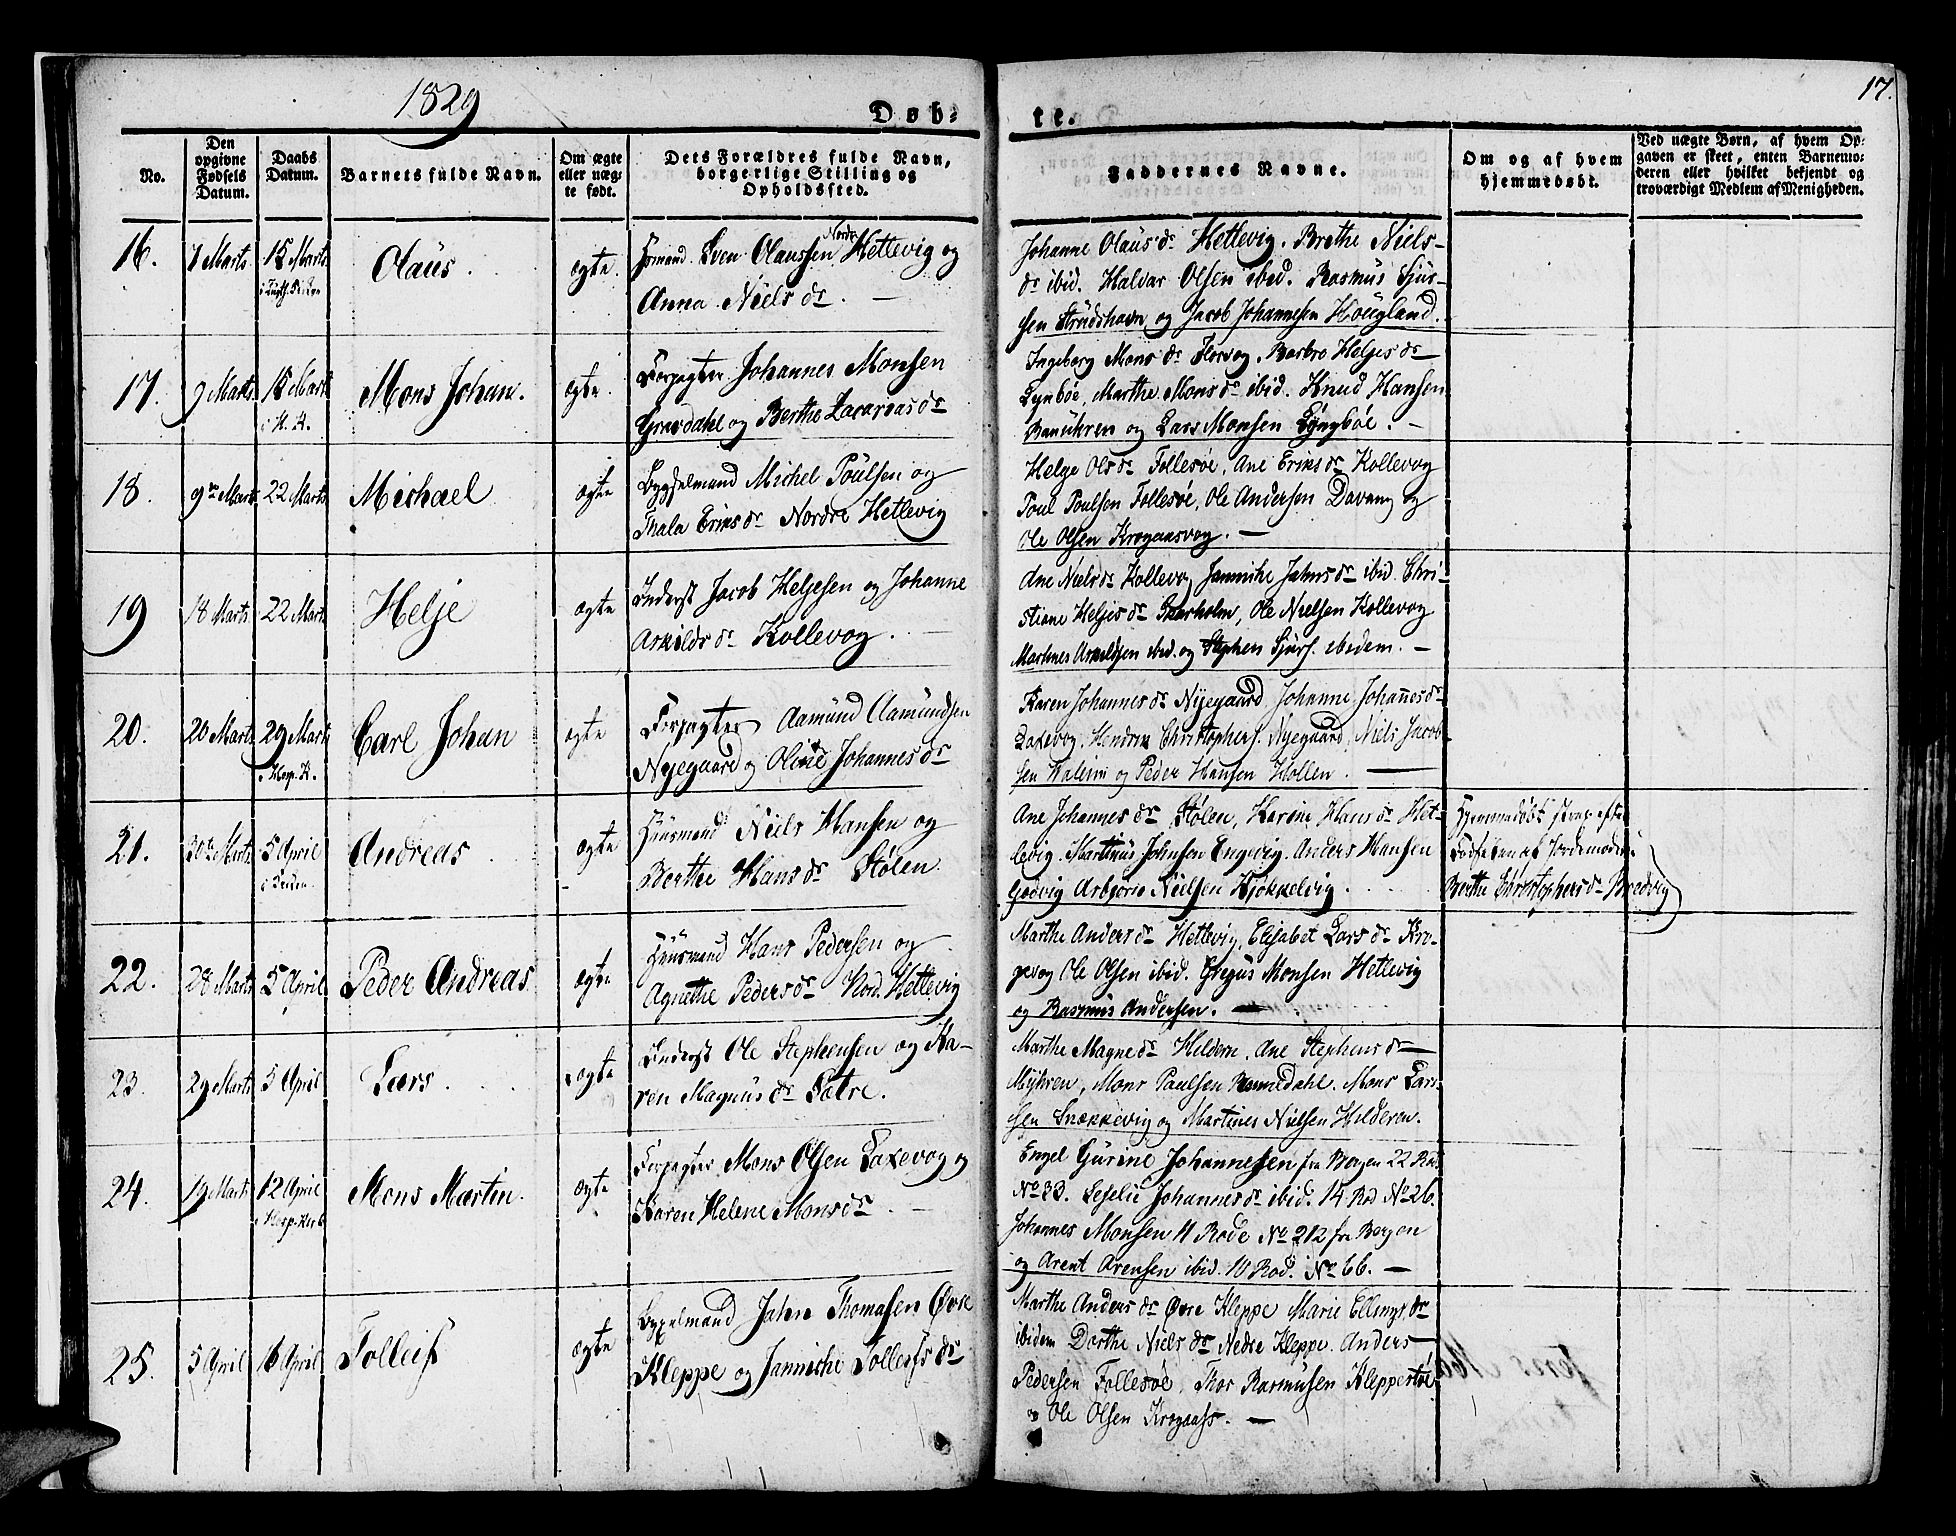 1829
Døb-
te.
17.
No.
Den opgivne Fødsels Datum.
Daabs Datum.
Barnets fulde Navn.
Om ægte eller uægte født.
Dets Forældres fulde Navn, borgerlige Stilling og Opholdssted.
Faddernes Navne.
Om og af hvem hjemmedøbt.
Ved uægte Børn, af hvem Opgaven er skeet, enten Barnemoderen eller hvilket bekjendt og troværdigt Medlem af Menigheden.
16.
7 Marts
15 Marts
Olaus
ægte
Sven Olaussen Nordr Hettevig og
Anna Niels dr. —
Johanne Olaus dr Hettevig. Brethe Niels-
dr ibid. Haldar Olsen ibid. Rasmus Sjur-
sen Strudshavn og Jacob Johannesen Hougland.
17.
9 Marts
15 Marts
i H. K.
Mons Johan.
ægte.
Forpagter Johannes Monsen
Gravdahl og Berthe Zacarias dr
Ingeborg Mons dr Florvog. Barbro Heljes dr
Lynbøe, Marthe Mons dr ibid. Knud Hansen
og Lars Monsen Lyngbøe. —
18.
9de Marts
22 Marts
Michael
ægte
Bygselmand Michel Poulsen og
Thala Eriks dr Nordre Hetlevig
Helge Ols dr Follesøe, Ane Eriks dr Kollevog
Poul Poulsen Follesøe, Ole Andersen Davang og
Ole Olsen Krogaasvog. —
19
18 Marts
22 Marts
Helje
ægte
Inderst Jacob Heljesen og Johanne
Askilds dr Kollevog. —
Ane Niels dr Kollevog Jannike Jahns dr ibid. Chri-
stiane Heljes dr Skarholm, Ole Nielsen Kollevog
Martines Askildsen ibid. og Stephen Sjurs. ibidem. —
20.
20 Marts
29 Marts
i Hosp. K.
Carl Johan
ægte
Forpagter Aamund Aamundsen
Nyegaard og Oline Johannes dr
Karen Johannes dr Nyegaard Johanne Johannes dr
Laxevog, Hendrik Christophers. Nyegaard, Niels Jacob-
sen og Peder Hansen Hollen. —
21.
30te Marts
5 April
Andreas
ægte
Huusmand Niels Hansen og
Berthe Hans dr Stølen.
Ane Johannes dr Stølen, Karine Hans dr Het-
levig. Martinus Johnsen Engevig. Anders Hansen
Godvig Asbjørn Nielsen Hjøkkelvig.
Hjemmedøbt strax efter
Fødselen af Jordemoder
Berthe Christophers dr Bredvig
22.
28 Marts
5 April
Peder Andreas
ægte
Huusmand Hans Pedersen og
Agnethe Peders dr Nord. Hettevig
Marthe Anders dr Hettevig, Elisabet Lars dr Kro-
gevog Ole Olsen ibid. Gregus Monsen Hetlevig
og Rasmus Andersen. —
23.
29 Marts
5 April
Lars
ægte
Inderst Ole Stephensen og Ka-
ren Magnus dr Sotre.
Marthe Magne dr Heldern, Ane Stephens dr
Myhren, Mons Paulsen Rammedahl. Mons Lars-
sen Snækkevig og Martines Nielsen Hilderen.
24.
19 Marts
12 April
Mons Martin.
ægte
Forpagter Mons Olsen Laxevog og
Karen Helene Mons dr —
Engel Gurine Johannesen fra Bergen 22 Rod
No 33. Leselie Johannes dr ibid. 14 Rod No 26.
Johannes Monsen 11 Rode No 212 fra Bergen
og Arent Arensen ibid. 10 Rod. No 66. —
25.
5 April
16 April
Tolleif
ægte
Bygselmand Jahn Thomasen Øvre
Kleppe og Janniche Tolleifs dr
Marthe Anders dr Øvre Kleppe Marie Ellings dr
ibidem Dorthe Niels dr Nedre Kleppe. Anders
Pedersen Follesøe, Thor Rasmusen Kleppestøe
og Ole Olsen Krogaass. —